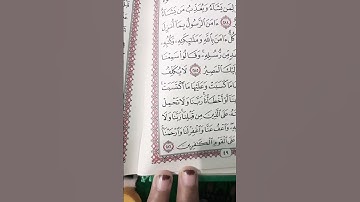 لِمَن يَشَآءُ وَيُعَذِّبُ مَن يَشَآءُ
٢٨٤ ءَامَنَ ٱلرَّسُولُ بِمَآ أُنزِلَ
كُلٌّ ءَامَنَ بِٱللَّهِ وَمَلَٰٓئِكَتِهِۦ وَكُتُبِهِۦ
مِّن رُّسُلِهِۦ وَقَالُوا۟ سَمِعْنَا
ٱلْمَصِيرُ ٢٨٥ لَا يُكَلِّفُ
كَسَبَتْ وَعَلَيْهَا مَا ٱكْتَسَبَتْ
أَوْ أَخْطَأْنَا رَبَّنَا وَلَا تَحْمِلْ
عَلَى ٱلَّذِينَ مِن قَبْلِنَا رَبَّنَا وَلَا
وَٱعْفُ عَنَّا وَٱغْفِرْ لَنَا وَٱرْحَمْنَآ
عَلَى ٱلْقَوْمِ ٱلْكَٰفِرِينَ ٢٨٦
٤٩